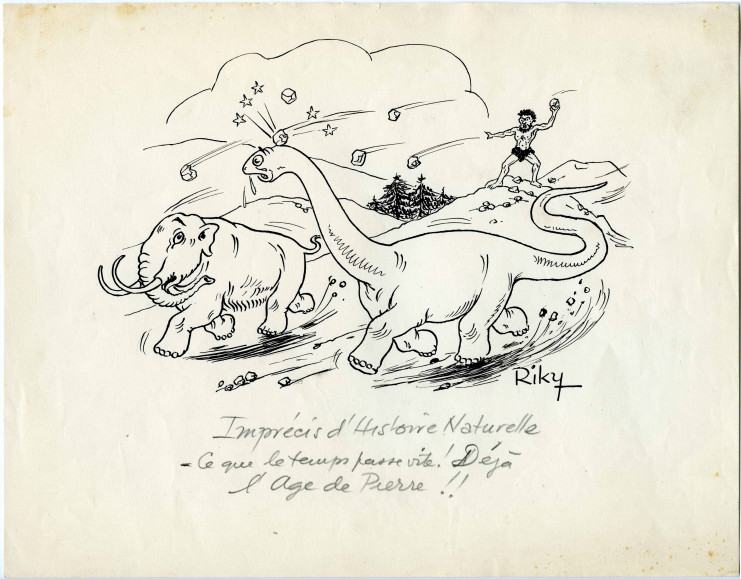 Riky
Imprécis d'Histoire Naturelle
- Ce que le temps passe vite! Déjà
l'Age de Pierre !!